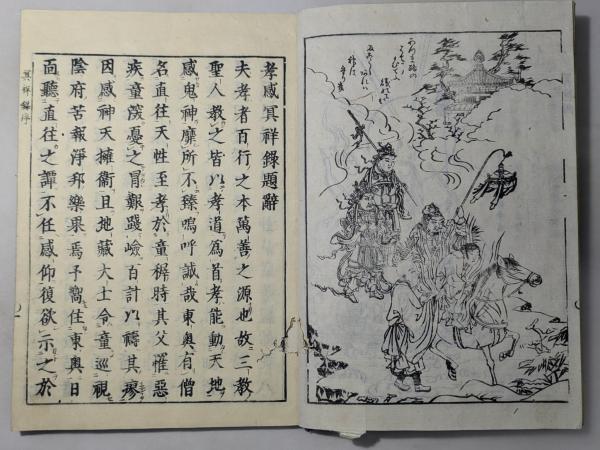 孝感冥祥錄題辭
夫孝者百行之本萬善之源也故三教
聖人教之皆以孝道爲首孝能動天地
感鬼神靡所不臻嗚呼誠哉東奧有僧
名直往天性至孝於童穉時其父罹惡
疾童深憂之冒艱踐嶮百計以禱其瘳
因感神天擁衞且地藏大士令童巡視
陰府苦報淨邦樂果焉予嚮住東奧日
面聽直往之譚不任感仰復欲示之於
冥祥錄序